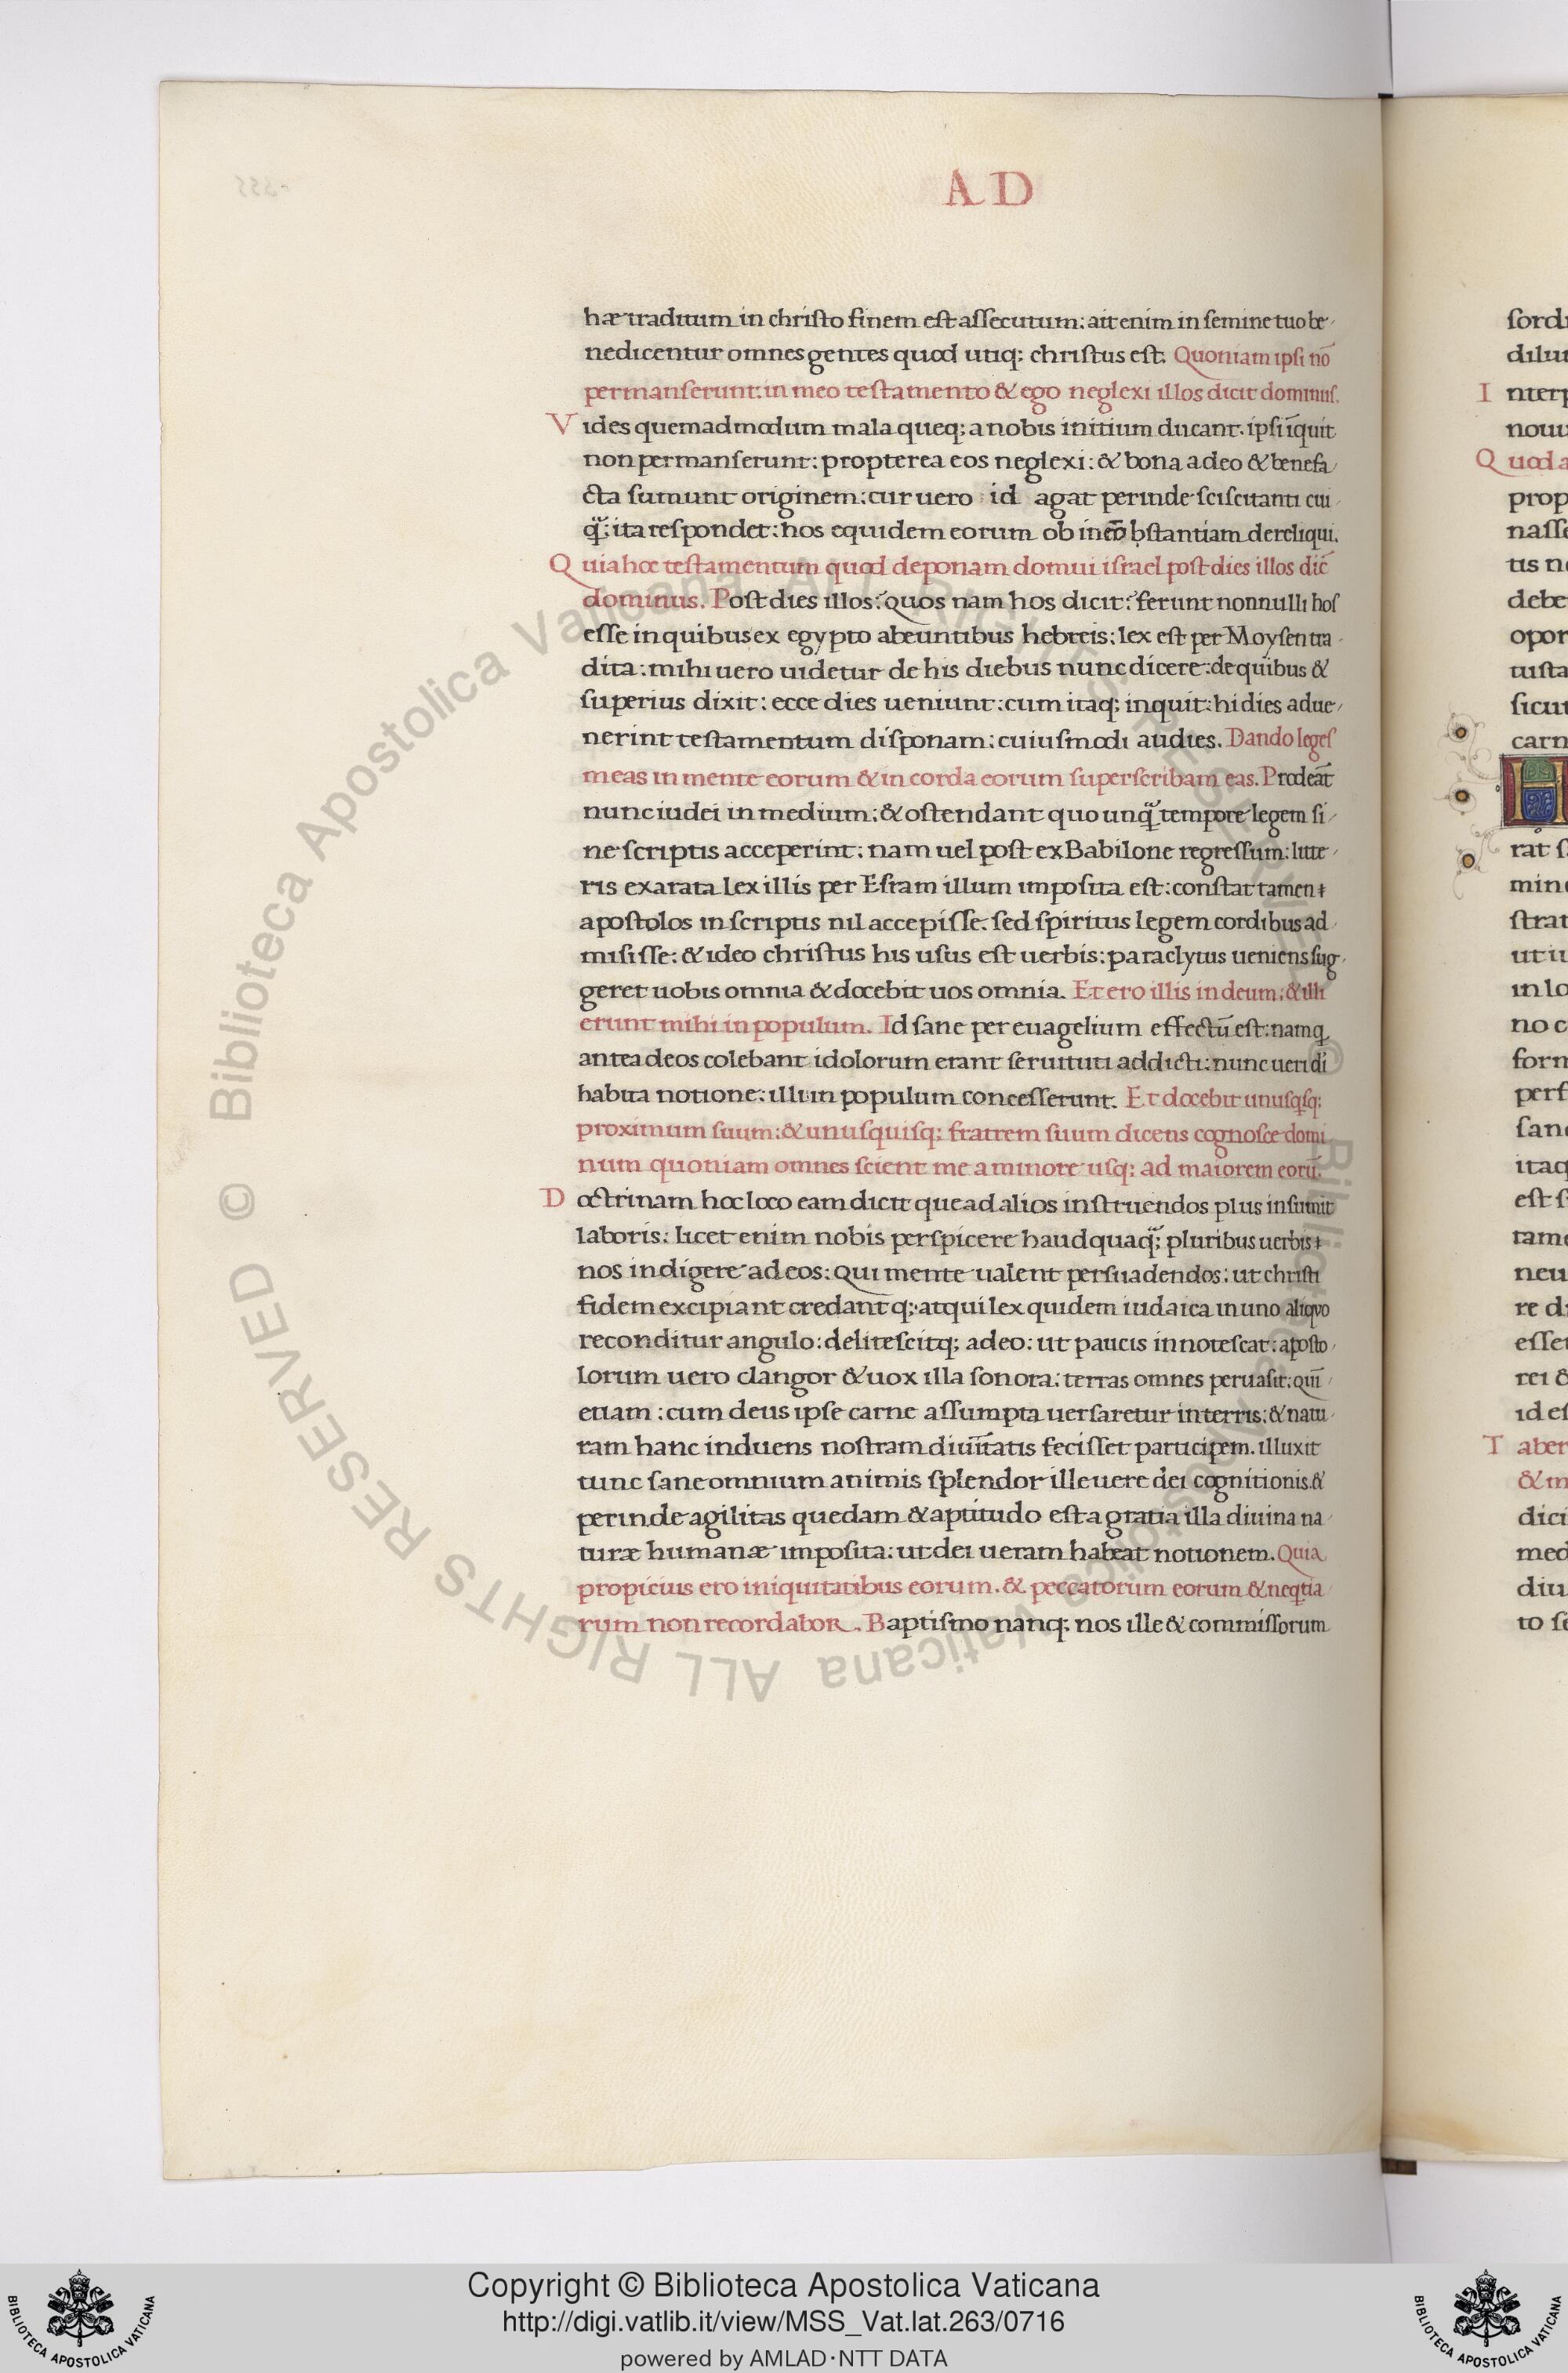 A D
hæ traditum in christo finem est assecutum: ait enim in semine tuo be
nedicentur omnes gentes quod utiq; christus est. Quoniam ipsi nō
permanserunt: in meo testamento & ego neglexi illos dicit dominus.
Vides quemadmodum mala queq; a nobis initium ducant. ipsi īquit
non permanserunt: propterea eos neglexi: & bona adeo & benefa
cta sumunt originem: cur uero id agat perinde sciscitanti cui
ita respondet: hos equidem eorum ob dereliqui.
Quia hoc testamentum quod deponam domui israel post dies illos dic̄
dominus. Post dies illos: quos nam hos dicit: ferunt nonnulli hos
esse in quibus ex egypto abeuntibus hebreis: lex est per Moysen tra
dita: mihi uero uidetur de his diebus nunc dicere: de quibus &
superius dixit: ecce dies ueniunt: cum itaq; inquit: hi dies adue
nerint testamentum disponam: cuiusmodi audies. Dando leges
meas in mente eorum & in corda eorum superscribam eas. Prodeāt
nunc iudei in medium: & ostendant quo unq̄ tempore legem si
ne scriptis acceperint: nam uel post ex Babilone regressum: litte
ris exarata Lex illis per Esram illum imposita est: constat tamen
apostolos in scriptis nil accepisse. sed spiritus legem cordibus ad
misisse: & ideo christus his usus est uerbis: paraclytus ueniens sug
geret uobis omnia & docebit uos omnia. Et ero illis in deum: & illi
erunt mihi in populum. Id sane per euagelium effectū est: namq;
antea deos colebant idolorum erant seruituti addicti: nunc ueri di
habita notione: illi in populum concesserunt. Et docebit unusqsq;
proximum suum: & unusquisq; fratrem suum dicens cognosce domi
num quoniam omnes scient me a minore usq; ad maiorem eorū.
Doctrinam hoc loco eam dicit que ad alios instruendos plus insumit
laboris: licet enim nobis perspicere haudquaq̄; pluribus uerbis
nos indigere ad eos: qui mente ualent persuadendos: ut christi
fidem excipiant credantq; atqui lex quidem iudaica in uno aliquo
reconditur angulo: delitescitq; adeo: ut paucis innotescat: aposto
lorum uero clangor & uox illa sonora: terras omnes peruasit: quī
etiam: cum deus ipse carne assumpta uersaretur in terris: & natu
ram hanc induens nostram diuītatis fecisset participem. illuxit
tunc sane omnium animis splendor ille uere dei cognitionis. &
perinde agilitas quedam & aptitudo est a gratia illa diuina na
turæ humanæ imposita: ut dei ueram habeat notionem. Quia
propicius ero iniquitatibus eorum. & peccatorum eorum & neqtia
rum non recordabor. Baptismo nanq; nos ille & commissorum
Copyright © Biblioteca Apostolica Vaticana
http://digi.vatlib.it/view/MSS_Vat.lat.263/0716
powered by AMLAD·NTT DATA